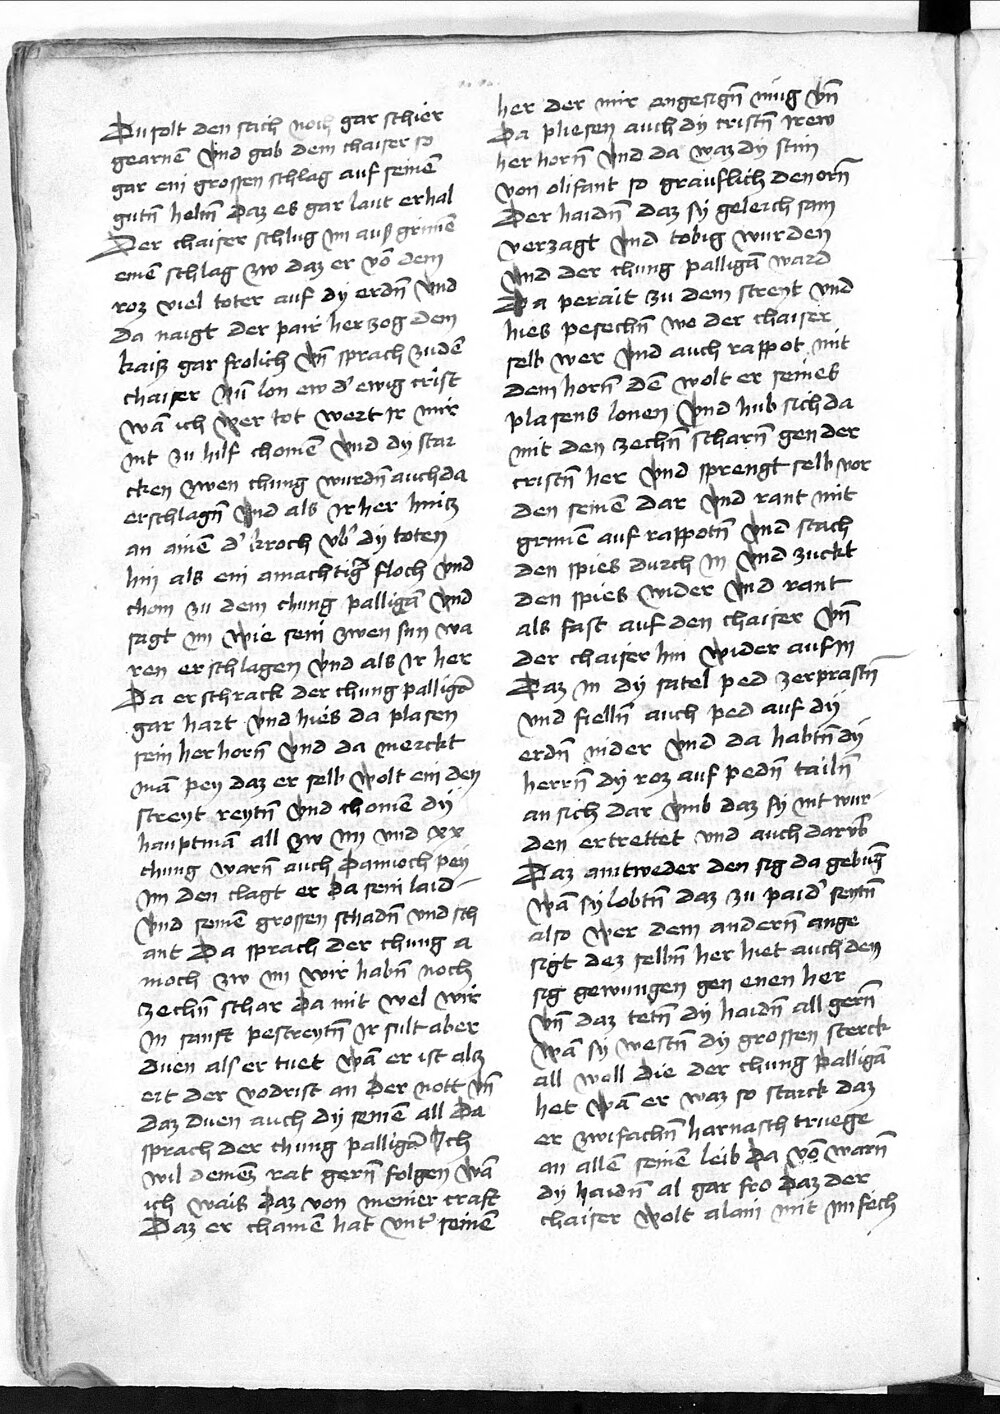 Du solt den sach noch gar schier
gearnē vnd gab dem chaiser so
gar ein grossen schlag auf seinē
gutn̄ helm̄ Daz es gar laut erhal
Der chaiser schlug im auß grimē
einē schlag zw daz er vō dem
roz viel toter auf dÿ erdn̄ vnd
Da naigt der pair herzog dem
kaiß gar frolich vn̄ sprach zudē
chaiser Nū lon ew d' ewig crist
Wā ich wer tot wert ir mir
nit zu hilf chomē vnd dÿ star
cken zwen chung wurdn̄ auch da
erschlagn̄ vnd als ir her hintz
an ainē d' kroch vb' dÿ toten
hin als ein amachtig' floch vnd
chom zu dem chung palligā vnd
sagt im wie sein zwen sun wa
ren erschlagen vnd als ir her
Da erschrack der chung palligā
gar hart vnd hies da plasen
sein her horn̄ vnd da merckt
mā peÿ daz er selb wolt ein den
streyt reytn̄ vnd chomē dÿ
hauptmā all zw im vnd xx
chung warn̄ auch Dannoch peÿ
im den clagt er Da sein laid
vnd seinē grossen schadn̄ vnd sch
ant Da sprach der chung a
moch zw im wir habn̄ noch
zechn̄ schar Da mit wel wir
In sanft pestreytn̄ Ir sult aber
duen als er tuet wā er ist alz
ert der vodrist an der nott vn̄
daz duen auch dÿ seinē all Da
sprach der chung palligā Ich
wil deinez rat gern̄ folgen wā
ich wais Daz von meiner craft
Daz er chainē hat vnt' seinē
her der mir angesign̄ mug vn̄
Da pliesen auch dÿ cristn̄ irew
her horn̄ vnd da waz dÿ stim
von olifant so grausslich den orn̄
Der haidn̄ daz sÿ geleich sam
verzagt vnd tobig wurden
vnd der chung palligā ward
Da perait zu dem streyt vnd
hies pesechn̄ we der chaiser
selb wer vnd auch rappot mit
dem horn̄ dē wolt er seines
plasens lonen vnd hub sich da
mit den zechn̄ scharn̄ gen der
cristn̄ her vnd sprengt selb vor
den seinē dar vnd rant mit
grimē auf rappotn̄ vnd stach
den spies durch in vnd zuckt
den spies wider vnd rant
als fast auf den chaiser vn̄
der chaiser hin wider auf in
Daz in dÿ satel ped zerprastn̄
vnd fielln̄ auch ped auf dÿ
erdn̄ nider vnd da habtn̄ dÿ
herrn̄ dÿ roz auf pedn̄ tailn̄
an sich dar vmb daz sÿ nit wur
den ertrettet vnd auch darvb'
Daz antweder den sig da gebūg
wā sÿ lobtn̄ daz zu paid' seytn̄
also wer dem andern̄ ange
sigt dez selbn̄ her hiet auch den
sig gewungen gen enen her
vn̄ daz tetn̄ dÿ haidn̄ all gern̄
wā sÿ westn̄ dÿ grossen sterck
all woll die der chung palligā
het wā er waz so starck daz
er zwifachn̄ harnasch truege
an allē seinē leib Da vō warn̄
dÿ haidn̄ al gar fro Daz der
chaiser wolt alain mit im fech